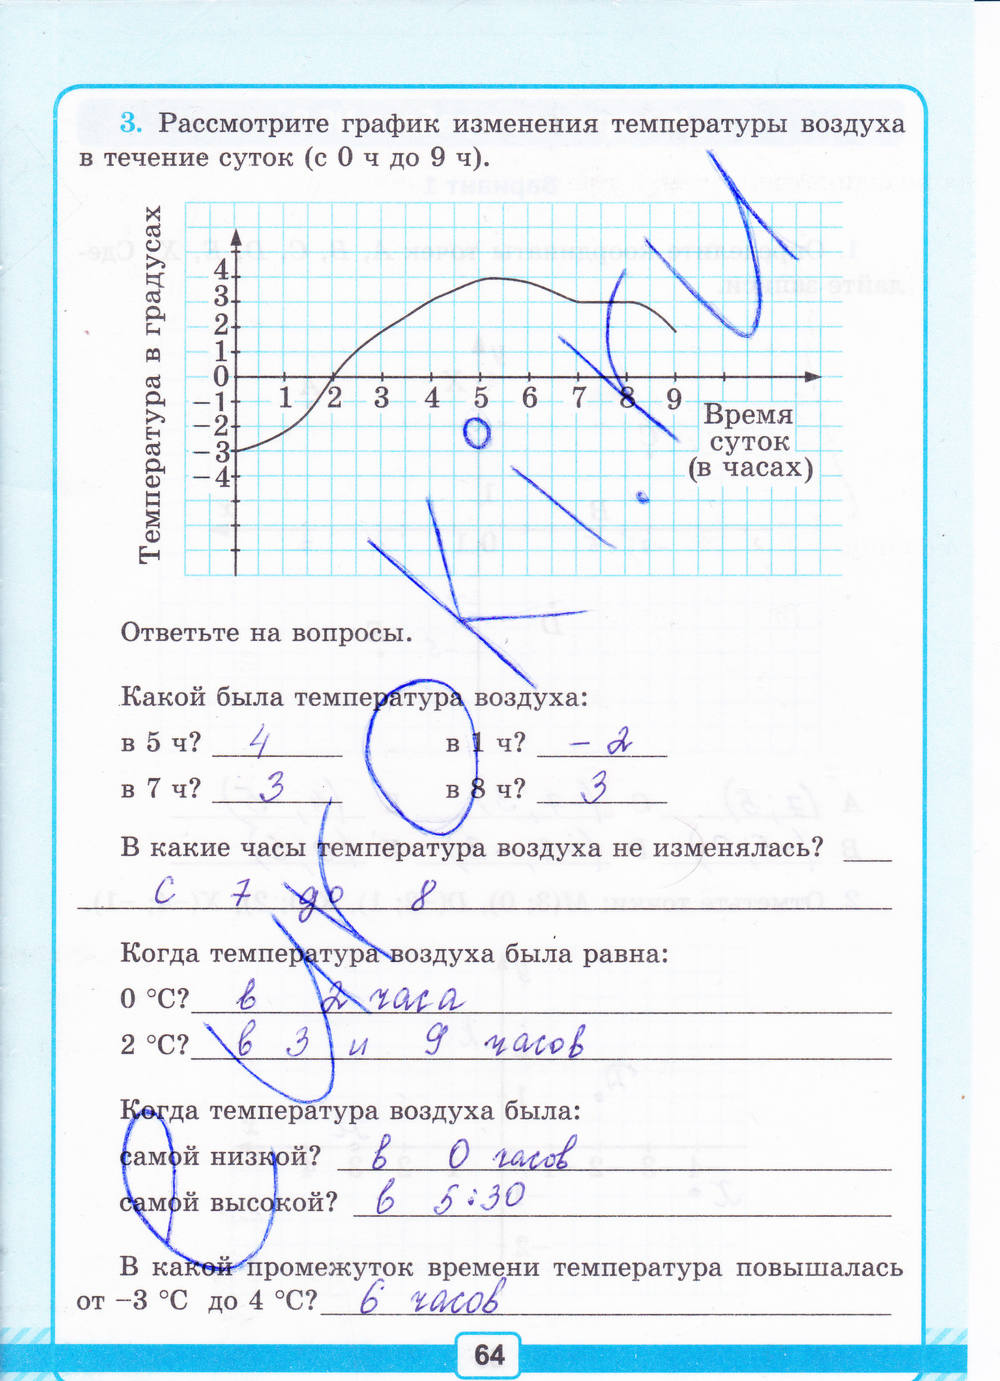 3. Рассмотрите график изменения температуры воздуха
в течение суток (с 0 ч до 9 ч).
Температура в градусах
4
3
2
1
0
−1
−2
−3
−4
1 2 3 4 5 6 7 8 9
Время
суток
(в часах)
Ответьте на вопросы.
Какой была температура воздуха:
в 5 ч? 4 в 1 ч? − 2
в 7 ч? 3 в 8 ч? 3
В какие часы температура воздуха не изменялась?
С 7 до 8
Когда температура воздуха была равна:
0 °С? в 2 часа
2 °С? в 3 и 9 часов
Когда температура воздуха была:
самой низкой? в 0 часов
самой высокой? в 5:30
В какой промежуток времени температура повышалась
от −3 °С до 4 °С? 6 часов
64